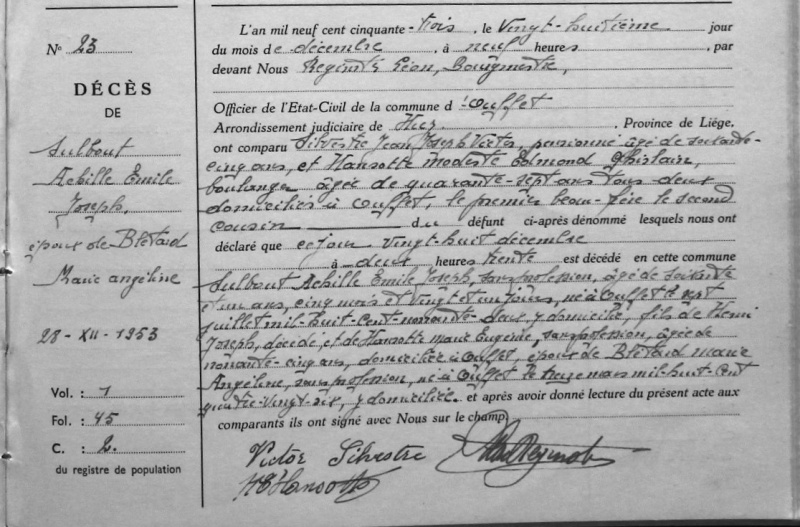 N° 23
DÉCÈS
DE
Sulbout
Achille Emile
Joseph,
époux de Blétard
Marie angéline
28 - XII - 1953
Vol. : 1
Fol. : 45
C. : 2.
du registre de population
L'an mil neuf cent cinquante-trois, le Vingt-huitième jour
du mois de décembre, à neuf heures, par
devant Nous Léon, Bourgmestre,
Officier de l'Etat-Civil de la commune d'Ouffet
Arrondissement judiciaire de Huy. Province de Liége.
ont comparu Silvestre Jean Joseph Victor, pensionné âgé de soixante-
cinq ans, et Hansotte modeste Edmond Ghislain,
boulanger âgée de quarante-sept ans tous deux
domiciliés à Ouffet, le premier beau-père le second
cousin du défunt ci-après dénommé lesquels nous ont
déclaré que ce jour vingt-huit décembre
à deux heures trente est décédé en cette commune
Sulbout Achille Emile Joseph, sans profession, âgé de soixante
et un ans, cinq mois et vingt et un jours, né à Ouffet le sept
juillet mil-huit-cent-nonante-deux, y domicilié, fils de Henri
Joseph, décédé, et de Hansotte marie Eugénie, sans profession, âgée de
nonante-cinq ans, domiciliée à Ouffet, époux de Blétard marie
Angéline, sans profession, né à Ouffet le treize mars mil-huit-cent
quatre-vingt-six, y domiciliée. et après avoir donné lecture du présent acte aux
comparants ils ont signé avec Nous sur le champ.
Victor Silvestre
Hansotte